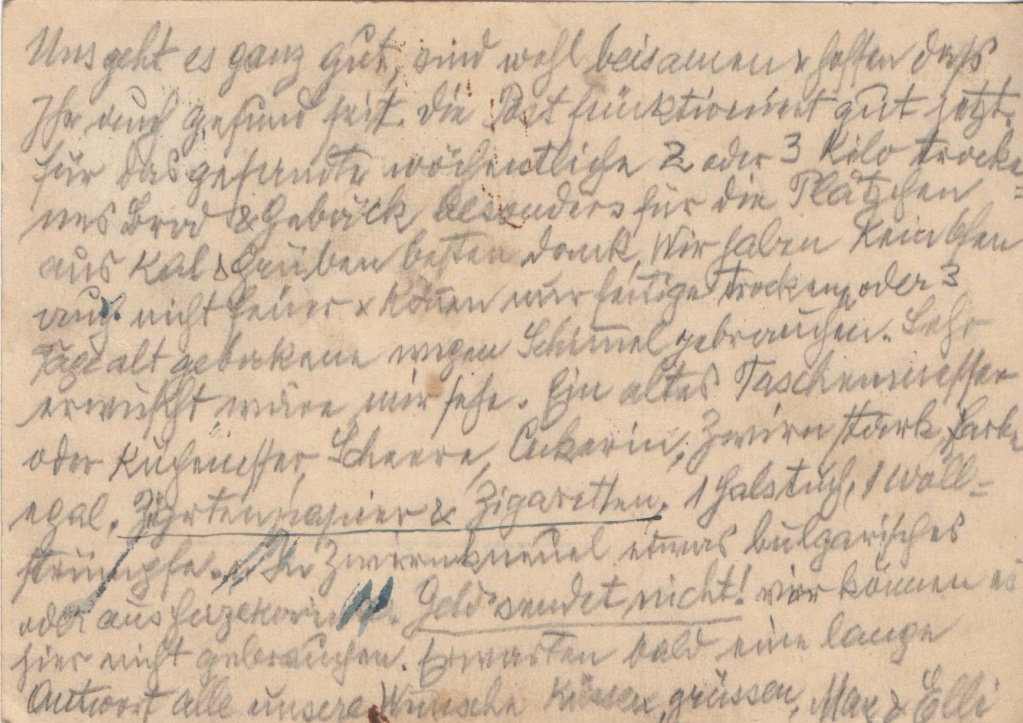 Uns geht es ganz gut, sind wohl beisamen & hoffen dass
Ihr auch gesund seit. Die Post funktioniert gut jetzt.
für das gesandte wöchentliche 2 oder 3 Kilo trocke=
nes Brod & Gebäck besonders für die Plätzchen
aus besten Dank, Wir haben kein Ofen
auch nicht Feuer & können nur fertige trockene oder 3
Tage alt gebakene wegen Schimmel gebrauchen. Sehr
erwünscht wäre mir sehr. Ein altes Taschenmesser
oder Küchenmesser, Scheere, Zwirn stark, Farbe
egal. & Zigaretten. 1 Halstuch, 1 Woll=
strümpfe. In Zwirnkneuel etwas bulgarisches
oder aus Geld sendet nicht! wir können es
hier nicht gebrauchen. Erwarten bald eine lange
Antwort alle unsere Wünsche Küssen, grüssen, Max & Elli